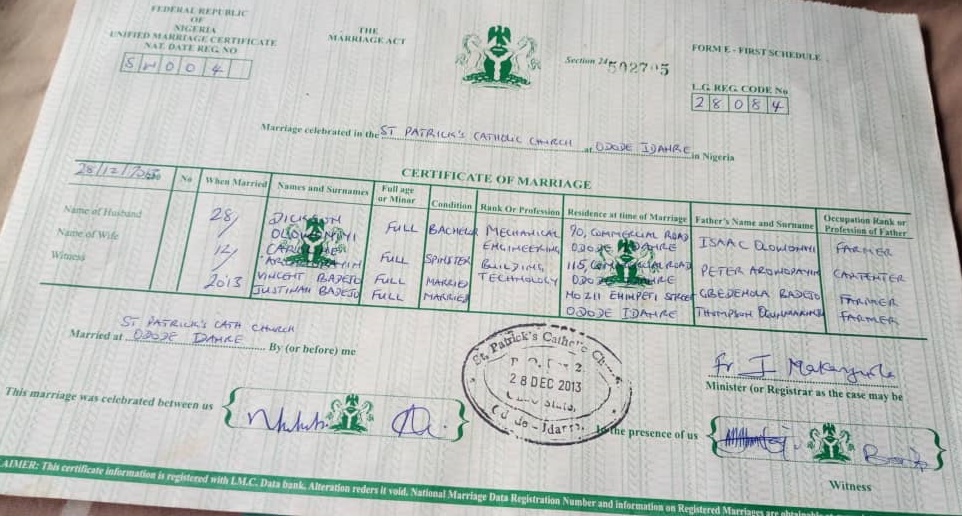 FEDERAL REPUBLIC
OF
NIGERIA
UNIFIED MARRIAGE CERTIFICATE
NAT. DATE REG. NO
SN004
THE
MARRIAGE ACT
Section 24
FORM E - FIRST SCHEDULE
L.G. REG. CODE No
28084
Marriage celebrated in the ST PATRICK'S CATHOLIC CHURCH at ODODE IDANRE in Nigeria
CERTIFICATE OF MARRIAGE
28/12/
No When Married Names and Surnames Full age or Minor Condition Rank Or Profession Residence at time of Marriage Father's Name and Surname Occupation Rank or Profession of Father
Name of Husband 28/ DICKSON FULL BACHELR MECHANICAL ENGINEERING 90, COMMERCIAL ROAD ODODE IDANRE ISAAC OLOWONIYI FARMER
Name of Wife 12/ FULL SPINSTER BUILDING TECHNOLOGY 115, ROAD PETER CARPENTER
Witness 2013 VINCENT BADEJO FULL MARRIED No 211 STREET GBEDEHOLA BADEJO FARMER
JUSTINAH BADEJO FULL MARRIED ODODE IDANRE THOMPSON FARMER
ST PATRICK'S CATH CHURCH
Married at ODODE IDANRE By (or before) me
Fr I
Minister (or Registrar as the case may be
St. Patrick's Catholic
28 DEC 2013
This marriage was celebrated between us
In the presence of us
Witness
AIMER: This certificate information is registered with I.M.C. Data bank. Alteration reders it void. National Marriage Data Registration Number and information on Registered Marriages are